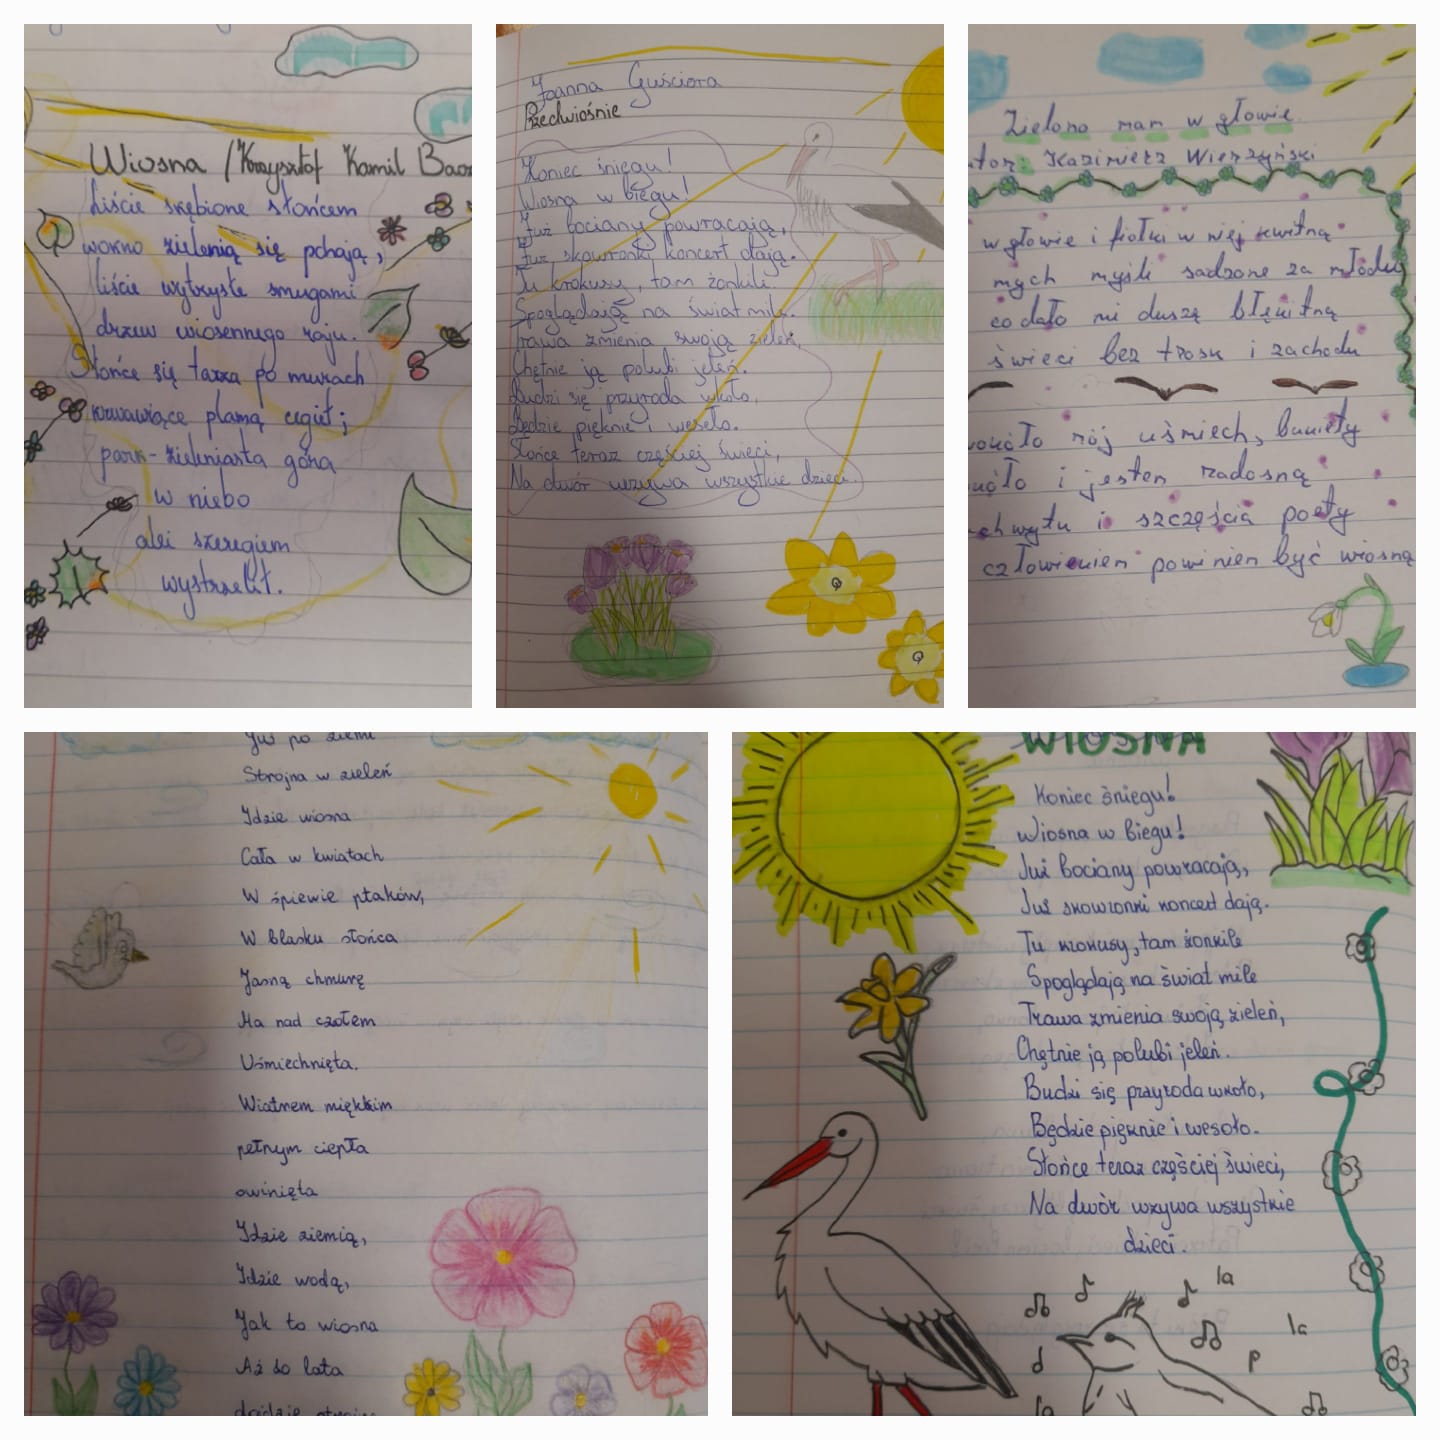 Wiosna / Krzysztof Kamil Bacz
Liście skębione słońcem
wokno zielenią się pchają,
liście wytrysłe smugami
drzew wiosennego raju.
Słońce się tarza po murach
krwawiące plamą cegieł;
park-zieleniasta góra
w niebo
alei szeregiem
wystrzelił.
Joanna Guściora
Przedwiośnie
Koniec śniegu!
Wiosna w biegu!
Już bociany powracają,
Już skowronki koncert dają.
Tu krokusy, tam żonkile.
Spoglądają na świat mile.
Trawa zmienia swoją zieleń,
Chętnie ją polubi jeleń.
Budzi się przyroda wkoło,
Będzie pięknie i wesoło.
Słońce teraz częściej świeci,
Na dwór wzywa wszystkie dzieci.
Zielono mam w głowie
tor: Kazimierz Wierzyński
w głowie i fiołki w niej kwitną
mych myśli sadzone za młodu
co dało mi duszę błękitną
świeci bez trosk i zachodu
mój uśmiech, bukiety
i jestem radosną
chwytu i szczęścia poety
człowiekiem powinien być wiosną
Już po ziemi
Strojna w zieleń
Idzie wiosna
Cała w kwiatach
W śpiewie ptaków,
W blasku słońca
Jasną chmurę
Ma nad czołem
Uśmiechnięta.
Wiatrem miękkim
pełnym ciepła
owinięta
Idzie ziemią,
Idzie wodą,
Jak to wiosna
Aż do lata
WIOSNA
Koniec śniegu!
Wiosna w biegu!
Już bociany powracają,
Już skowronki koncert dają.
Tu krokusy, tam żonkile
Spoglądają na świat mile
Trawa zmienia swoją zieleń,
Chętnie ją polubi jeleń.
Budzi się przyroda wkoło,
Będzie pięknie i wesoło.
Słońce teraz częściej świeci,
Na dwór wzywa wszystkie
dzieci.
la
la
p
la